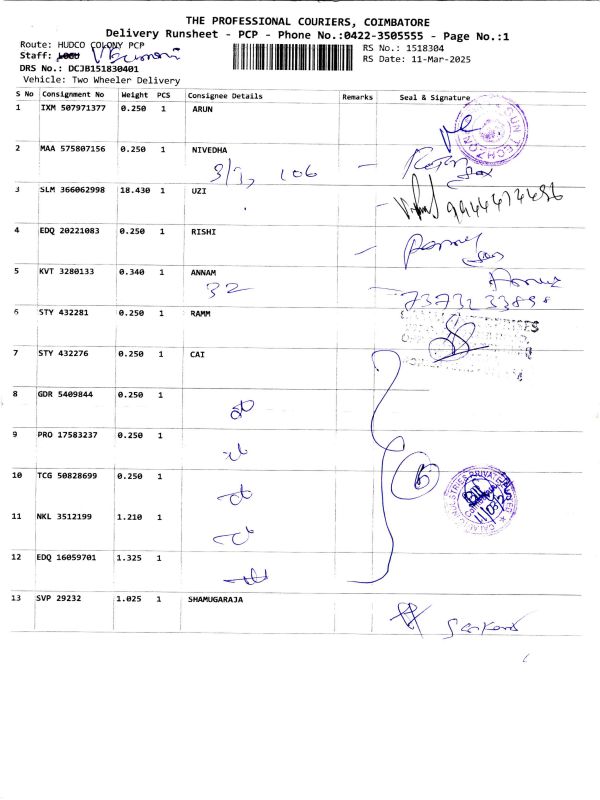 THE PROFESSIONAL COURIERS, COIMBATORE
Delivery Runsheet - PCP - Phone No.:0422-3505555 - Page No.:1
Route: HUDCO COLONY PCP
RS No.: 1518304
Staff:
RS Date: 11-Mar-2025
DRS No.: DCJB151830401
Vehicle: Two Wheeler Delivery
S No Consignment No Weight PCS Consignee Details Remarks Seal & Signature
1 IXM 507971377 0.250 1 ARUN
2 MAA 575807156 0.250 1 NIVEDHA
106
3 SLM 366062998 18.430 1 UZI
4 EDQ 20221083 0.250 1 RISHI
5 KVT 3280133 0.340 1 ANNAM
32
6 STY 432281 0.250 1 RAMM
7 STY 432276 0.250 1 CAI
8 GDR 5409844 0.250 1
9 PRO 17583237 0.250 1
10 TCG 50828699 0.250 1
11 NKL 3512199 1.210 1
12 EDQ 16059701 1.325 1
13 SVP 29232 1.025 1 SHAMUGARAJA